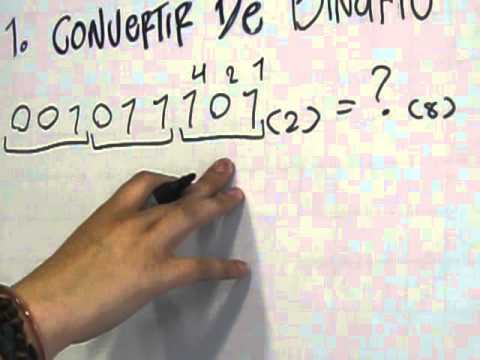 1. CONVERTIR DE BINARIO
4 2 1
001 011 101 (2) = ? (8)